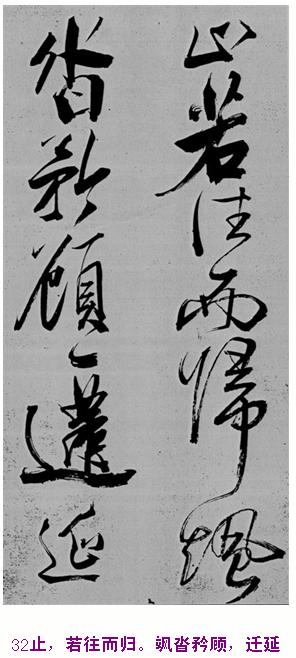 止若往而歸颯
沓矜顧遷延
32止，若往而归。飒沓矜顾，迁延